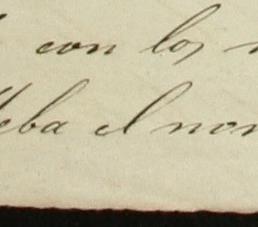 con los
lleba el nom